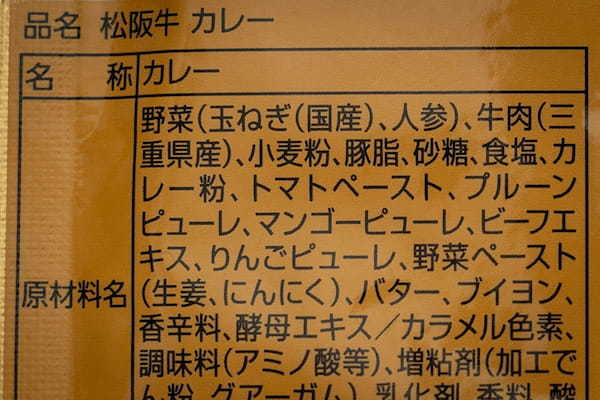 品名 松阪牛 カレー
名 称 カレー
野菜(玉ねぎ(国産)、人参)、牛肉(三
重県産)、小麦粉、豚脂、砂糖、食塩、カ
レー粉、トマトペースト、プルーン
ピューレ、マンゴーピューレ、ビーフエ
キス、りんごピューレ、野菜ペースト
原材料名 (生姜、にんにく)、バター、ブイヨン、
香辛料、酵母エキス/カラメル色素、
調味料(アミノ酸等)、増粘剤(加工で
ん粉、グアーガム)、乳化剤、香料、酸